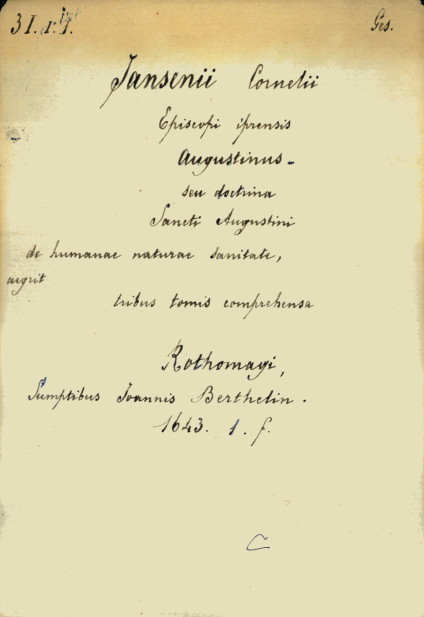 31. r. 1. Ges.
Jansenii Cornelii
Episcopi iprensis
Augustinus -
seu doctrina
Sancti Augustini
de humanae naturae sanitate,
aegrit
tribus tomis comprehensa
Rothomagi,
Sumptibus Joannis Berthelin.
1643. 1. f.